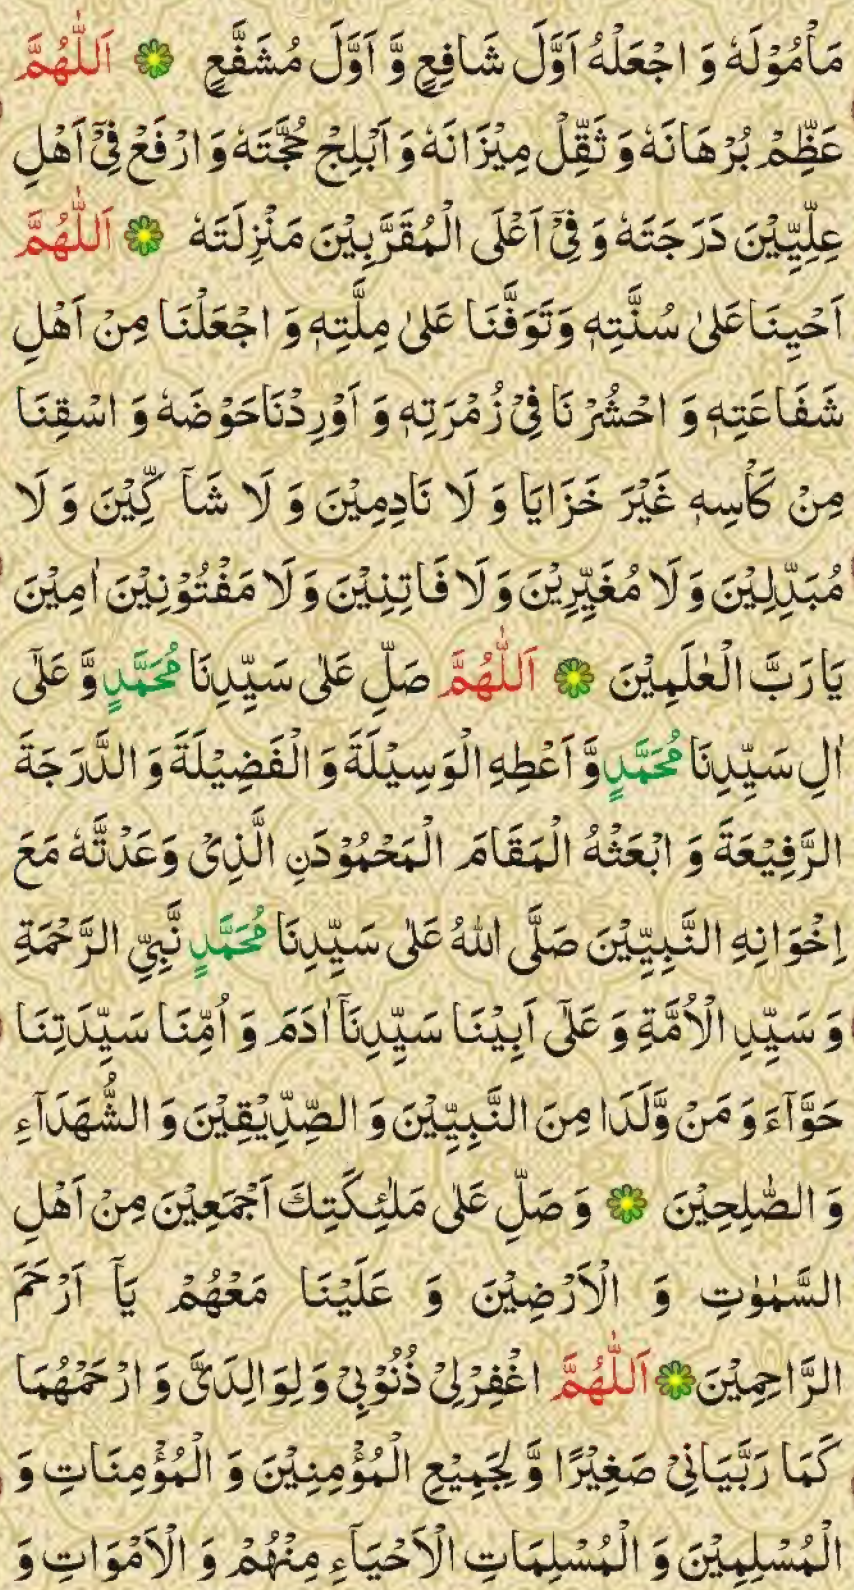 مَاْمُوْلَهٗ وَ اجْعَلْهُ اَوَّلَ شَافِعٍ وَّ اَوَّلَ مُشَفَّعٍ ۞ اَللّٰهُمَّ
عَظِّمْ بُرْهَانَهٗ وَ ثَقِّلْ مِيْزَانَهٗ وَ اَبْلِجْ حُجَّتَهٗ وَ ارْفَعْ فِيْٓ اَهْلِ
عِلِّيِّيْنَ دَرَجَتَهٗ وَ فِيْٓ اَعْلَى الْمُقَرَّبِيْنَ مَنْزِلَتَهٗ ۞ اَللّٰهُمَّ
اَحْيِنَا عَلٰى سُنَّتِهٖ وَ تَوَفَّنَا عَلٰى مِلَّتِهٖ وَ اجْعَلْنَا مِنْ اَهْلِ
شَفَاعَتِهٖ وَ احْشُرْنَا فِيْ زُمْرَتِهٖ وَ اَوْرِدْنَا حَوْضَهٗ وَ اسْقِنَا
مِنْ كَاْسِهٖ غَيْرَ خَزَايَا وَ لَا نَادِمِيْنَ وَ لَا شَآكِّيْنَ وَ لَا
مُبَدِّلِيْنَ وَ لَا مُغَيِّرِيْنَ وَ لَا فَاتِنِيْنَ وَ لَا مَفْتُوْنِيْنَ اٰمِيْنَ
يَا رَبَّ الْعٰلَمِيْنَ ۞ اَللّٰهُمَّ صَلِّ عَلٰى سَيِّدِنَا مُحَمَّدٍ وَّ عَلٰٓى
اٰلِ سَيِّدِنَا مُحَمَّدٍ وَّ اَعْطِهِ الْوَسِيْلَةَ وَ الْفَضِيْلَةَ وَ الدَّرَجَةَ
الرَّفِيْعَةَ وَ ابْعَثْهُ الْمَقَامَ الْمَحْمُوْدَنِ الَّذِيْ وَعَدْتَّهٗ مَعَ
اِخْوَانِهِ النَّبِيِّيْنَ صَلَّى اللهُ عَلٰى سَيِّدِنَا مُحَمَّدٍ نَّبِيِّ الرَّحْمَةِ
وَ سَيِّدِ الْاُمَّةِ وَ عَلٰٓى اَبِيْنَا سَيِّدِنَآ اٰدَمَ وَ اُمِّنَا سَيِّدَتِنَا
حَوَّآءَ وَ مَنْ وَّلَدَا مِنَ النَّبِيِّيْنَ وَ الصِّدِّيْقِيْنَ وَ الشُّهَدَآءِ
وَ الصّٰلِحِيْنَ ۞ وَ صَلِّ عَلٰى مَلٰٓئِكَتِكَ اَجْمَعِيْنَ مِنْ اَهْلِ
السَّمٰوٰتِ وَ الْاَرْضِيْنَ وَ عَلَيْنَا مَعْهُمْ يَآ اَرْحَمَ
الرَّاحِمِيْنَ ۞ اَللّٰهُمَّ اغْفِرْلِيْ ذُنُوْبِيْ وَ لِوَالِدَيَّ وَ ارْحَمْهُمَا
كَمَا رَبَّيَانِيْ صَغِيْرًا وَّ لِجَمِيْعِ الْمُؤْمِنِيْنَ وَ الْمُؤْمِنَاتِ وَ
الْمُسْلِمِيْنَ وَ الْمُسْلِمَاتِ الْاَحْيَآءِ مِنْهُمْ وَ الْاَمْوَاتِ وَ